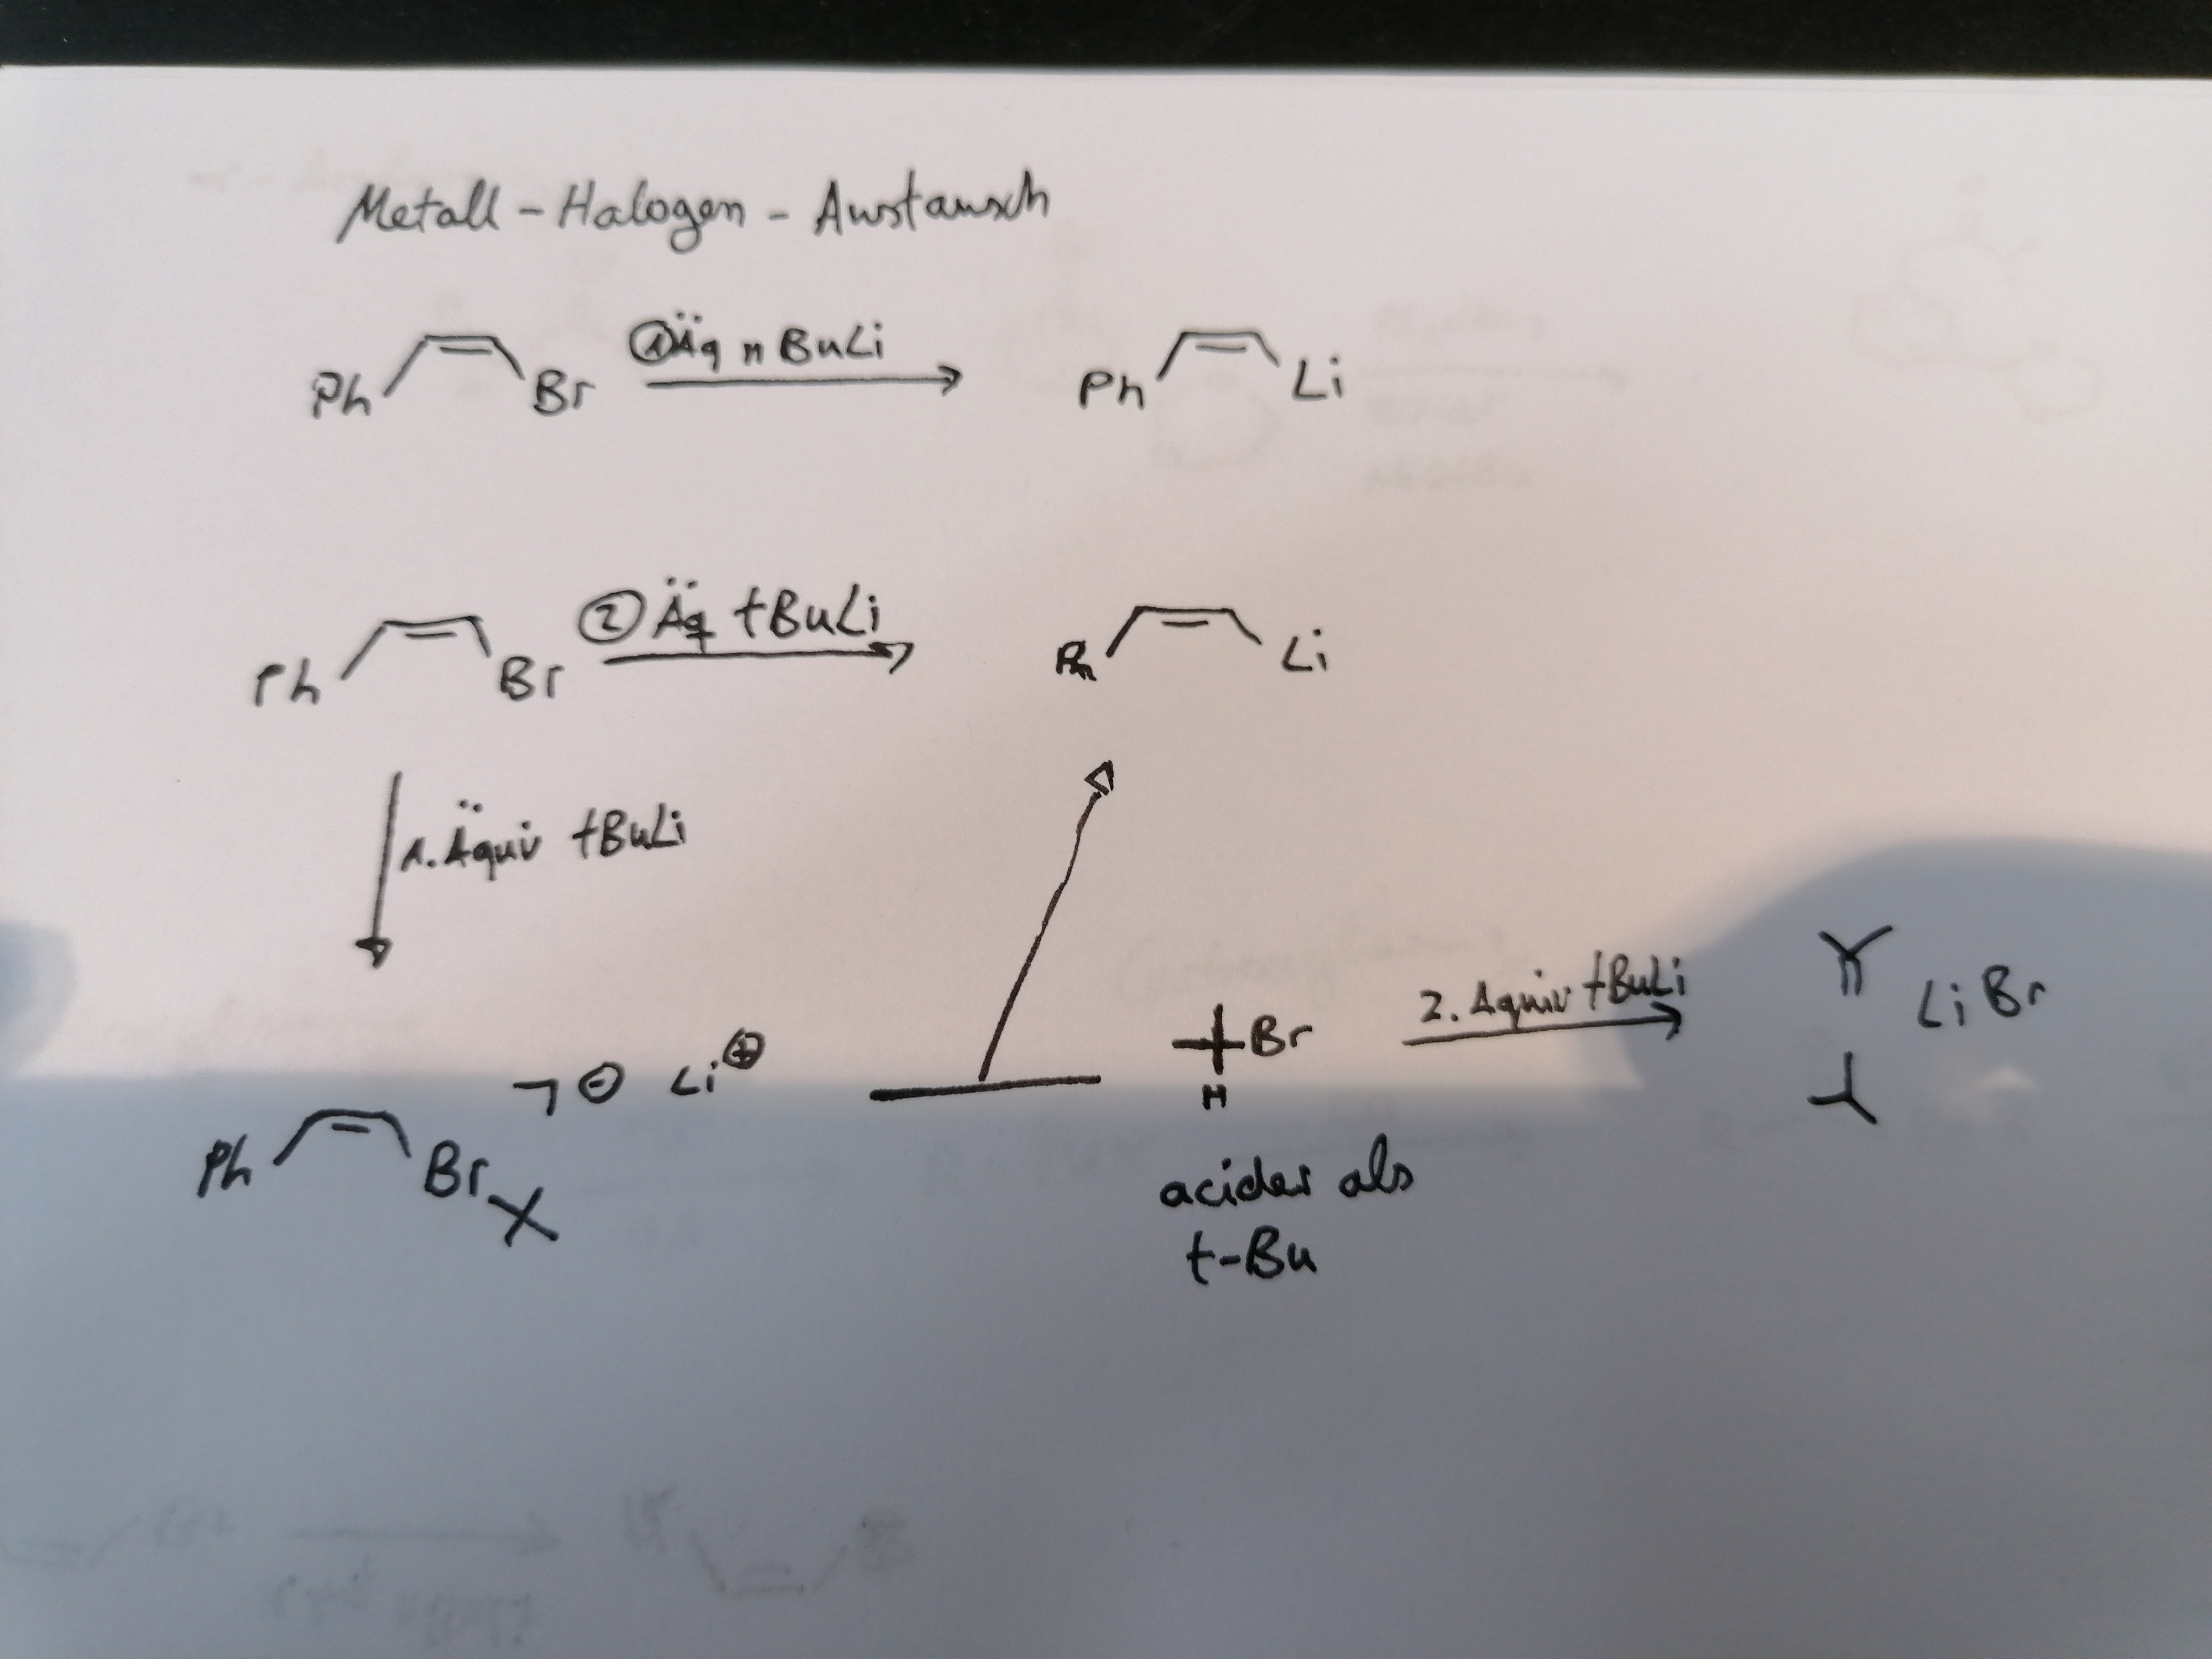 Metall-Halogen-Austausch
Ph Br ①Äq nBuLi Ph Li
Ph Br ②Äq tBuLi Ph Li
1. Äquiv tBuLi
Ph Br ⊖ Li⊕
Br H 2. Äquiv tBuLi LiBr
acider als
t-Bu